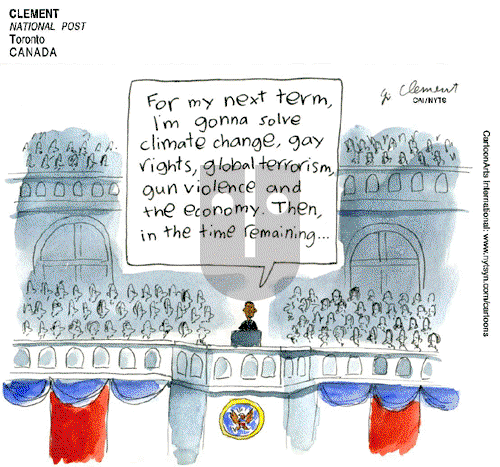 CLEMENT
NATIONAL POST
Toronto
CANADA
G. Clement
CAN/NYTS
For my next term,
I'm gonna solve
climate change, gay
rights, global terrorism,
gun violence and
the economy. Then,
in the time remaining...
CartoonArts International: www.nytsyn.com/cartoons